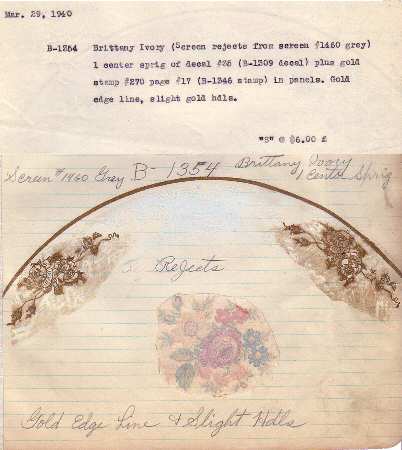 Mar. 29, 1940
B-1354 Brittany Ivory (Screen rejects from screen #1460 grey)
1 center sprig of decal #26 (B-1309 decal) plus gold
stamp #270 page #17 (B-1346 stamp) in panels. Gold
edge line, slight gold hdls.
"S" @ $6.00 £
Screen #1460 Grey B-1354 Brittany Ivory
1 Center Sprig
Rejects
Gold Edge Line & Slight Hdls